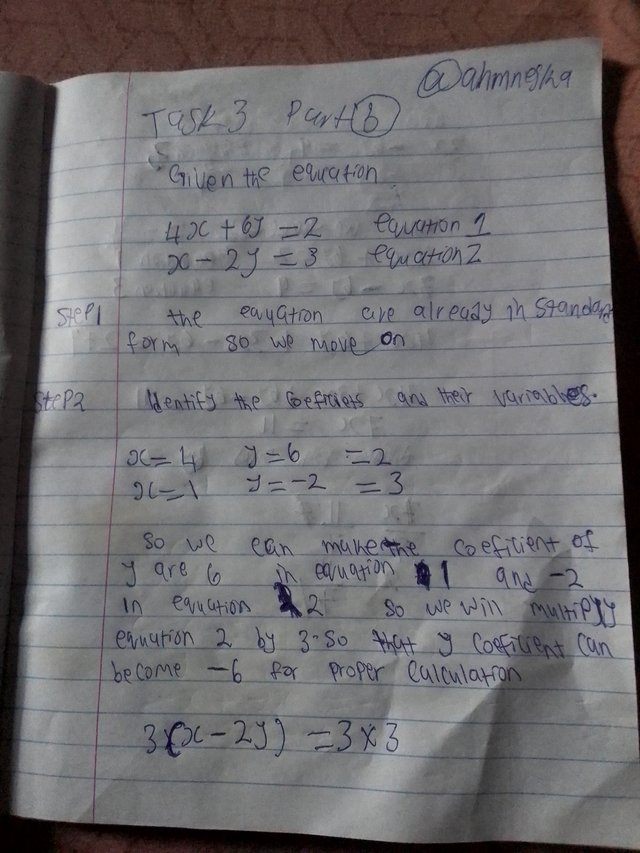 @ahmnejka
Task 3 Part b
Given the equation
4x + 6y = 2 equation 1
x - 2y = 3 equation 2
Step 1 the equation are already in standard
form so we move on
Step 2 Identify the Coeficiets and their variables.
x = 4 y = 6 = 2
x = 1 y = -2 = 3
so we can make the coeficient of
y are 6 in equation 1 and -2
in equation 2 so we win multiply
equation 2 by 3 - so that y coeficient can
become -6 for proper calculation
3(x - 2y) = 3 x 3